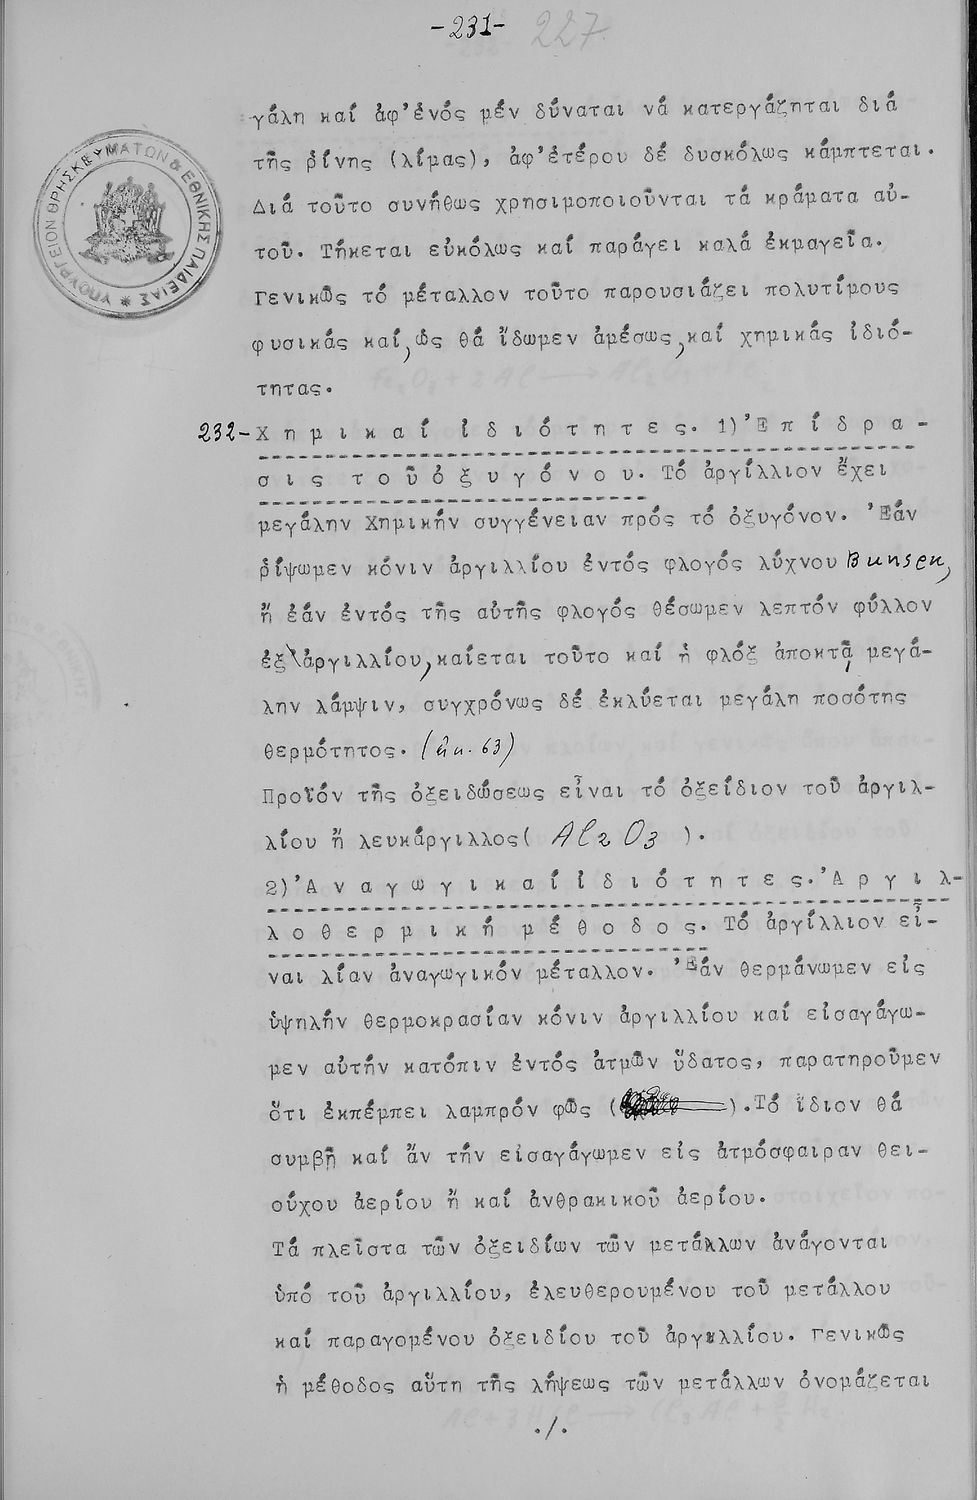 -231- 227
γάλη καί ἀφ'ἑνός μέν δύναται νά κατεργάζηται διά
τῆς ῥίνης (λίμας), ἀφ'ἑτέρου δέ δυσκόλως κάμπτεται.
Διά τοῦτο συνήθως χρησιμοποιοῦνται τά κράματα αὐ-
τοῦ. Τήκεται εὐκόλως καί παράγει καλά ἐκμαγεῖα.
Γενικῶς τό μέταλλον τοῦτο παρουσιάζει πολυτίμους
φυσικάς καί, ὡς θά ἴδωμεν ἀμέσως, καί χημικάς ἰδιό-
τητας.
232- Χημικαί ἰδιότητες. 1) Ἐπίδρα-
σις τοῦ ὀξυγόνου. Τό ἀργίλλιον ἔχει
μεγάλην Χημικήν συγγένειαν πρός τό ὀξυγόνον. Ἐάν
ῥίψωμεν κόνιν ἀργιλλίου ἐντός φλογός λύχνου Bunsen,
ἤ ἐάν ἐντός τῆς αὐτῆς φλογός θέσωμεν λεπτόν φύλλον
ἐξ ἀργιλλίου, καίεται τοῦτο καί ἡ φλόξ ἀποκτᾷ μεγά-
λην λάμψιν, συγχρόνως δέ ἐκλύεται μεγάλη ποσότης
θερμότητος. (εἰκ. 63)
Προϊόν τῆς ὀξειδώσεως εἶναι τό ὀξείδιον τοῦ ἀργιλ-
λίου ἤ λευκάργιλλος( Al2 O3 ).
2) Ἀναγωγικαί ἰδιότητες. Ἀργιλ-
λοθερμική μέθοδος. Τό ἀργίλλιον εἶ-
ναι λίαν ἀναγωγικόν μέταλλον. Ἐάν θερμάνωμεν εἰς
ὑψηλήν θερμοκρασίαν κόνιν ἀργιλλίου καί εἰσαγάγω-
μεν αὐτήν κατόπιν ἐντός ἀτμῶν ὕδατος, παρατηροῦμεν
ὅτι ἐκπέμπει λαμπρόν φῶς ( ).Τό ἴδιον θά
συμβῇ καί ἄν τήν εἰσαγάγωμεν εἰς ἀτμόσφαιραν θει-
ούχου ἀερίου ἤ καί ἀνθρακικοῦ ἀερίου.
Τά πλεῖστα τῶν ὀξειδίων τῶν μετάλλων ἀνάγονται
ὑπό τοῦ ἀργιλλίου, ἐλευθερουμένου τοῦ μετάλλου
καί παραγομένου ὀξειδίου τοῦ ἀργιλλίου. Γενικῶς
ἡ μέθοδος αὕτη τῆς λήψεως τῶν μετάλλων ὀνομάζεται
./.
ΥΠΟΥΡΓΕΙΟΝ ΘΡΗΣΚΕΥΜΑΤΩΝ & ΕΘΝΙΚΗΣ ΠΑΙΔΕΙΑΣ